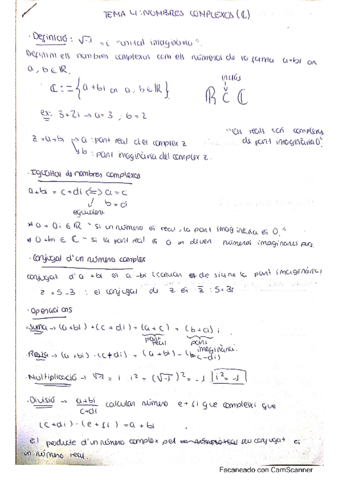 TEMA 4: NOMBRES COMPLEXOS (ℂ)
· Definició: √-1 = i "unitat imaginària".
Definim els nombres complexos com els números de la forma a+bi on
a, b ∈ ℝ.
ℂ := {a+bi on a, b ∈ ℝ}
inclòs
ℝ ⊂ ℂ
ex: 3+2i → a=3 ; b=2
"Els reals són complexos
de part imaginària 0".
z = a+bi → a: part real del complex z
b: part imaginària del complex z.
· Igualtat de nombres complexos
a+bi = c+di <=> a=c
b=d
equacions
* a+0i ∈ ℝ - si un número és real, la part imaginària és 0."
* 0+bi ∈ ℂ - si la part real és 0 en diuen números imaginaris purs.
· Conjugat d'un nombre complex
conjugat d'a+bi és a-bi (canvi de signe la part imaginària)
el conjugat de z és z̄
· Operacions
· Suma → (a+bi) + (c+di) = (a+c) + (b+d)i
part real
part imaginària
· Resta → (a+bi) - (c+di) = (a-c) + (b-d)i
· Multiplicació → √-1 = i i² = (√-1)² = -1 i² = -1
· Divisió → a+bi/c+di calcular número e+fi que compleixi que
(c+di) · (e+fi) = a+bi
el producte d'un número complex pel seu conjugat és
un número real.
Escaneado con CamScanner